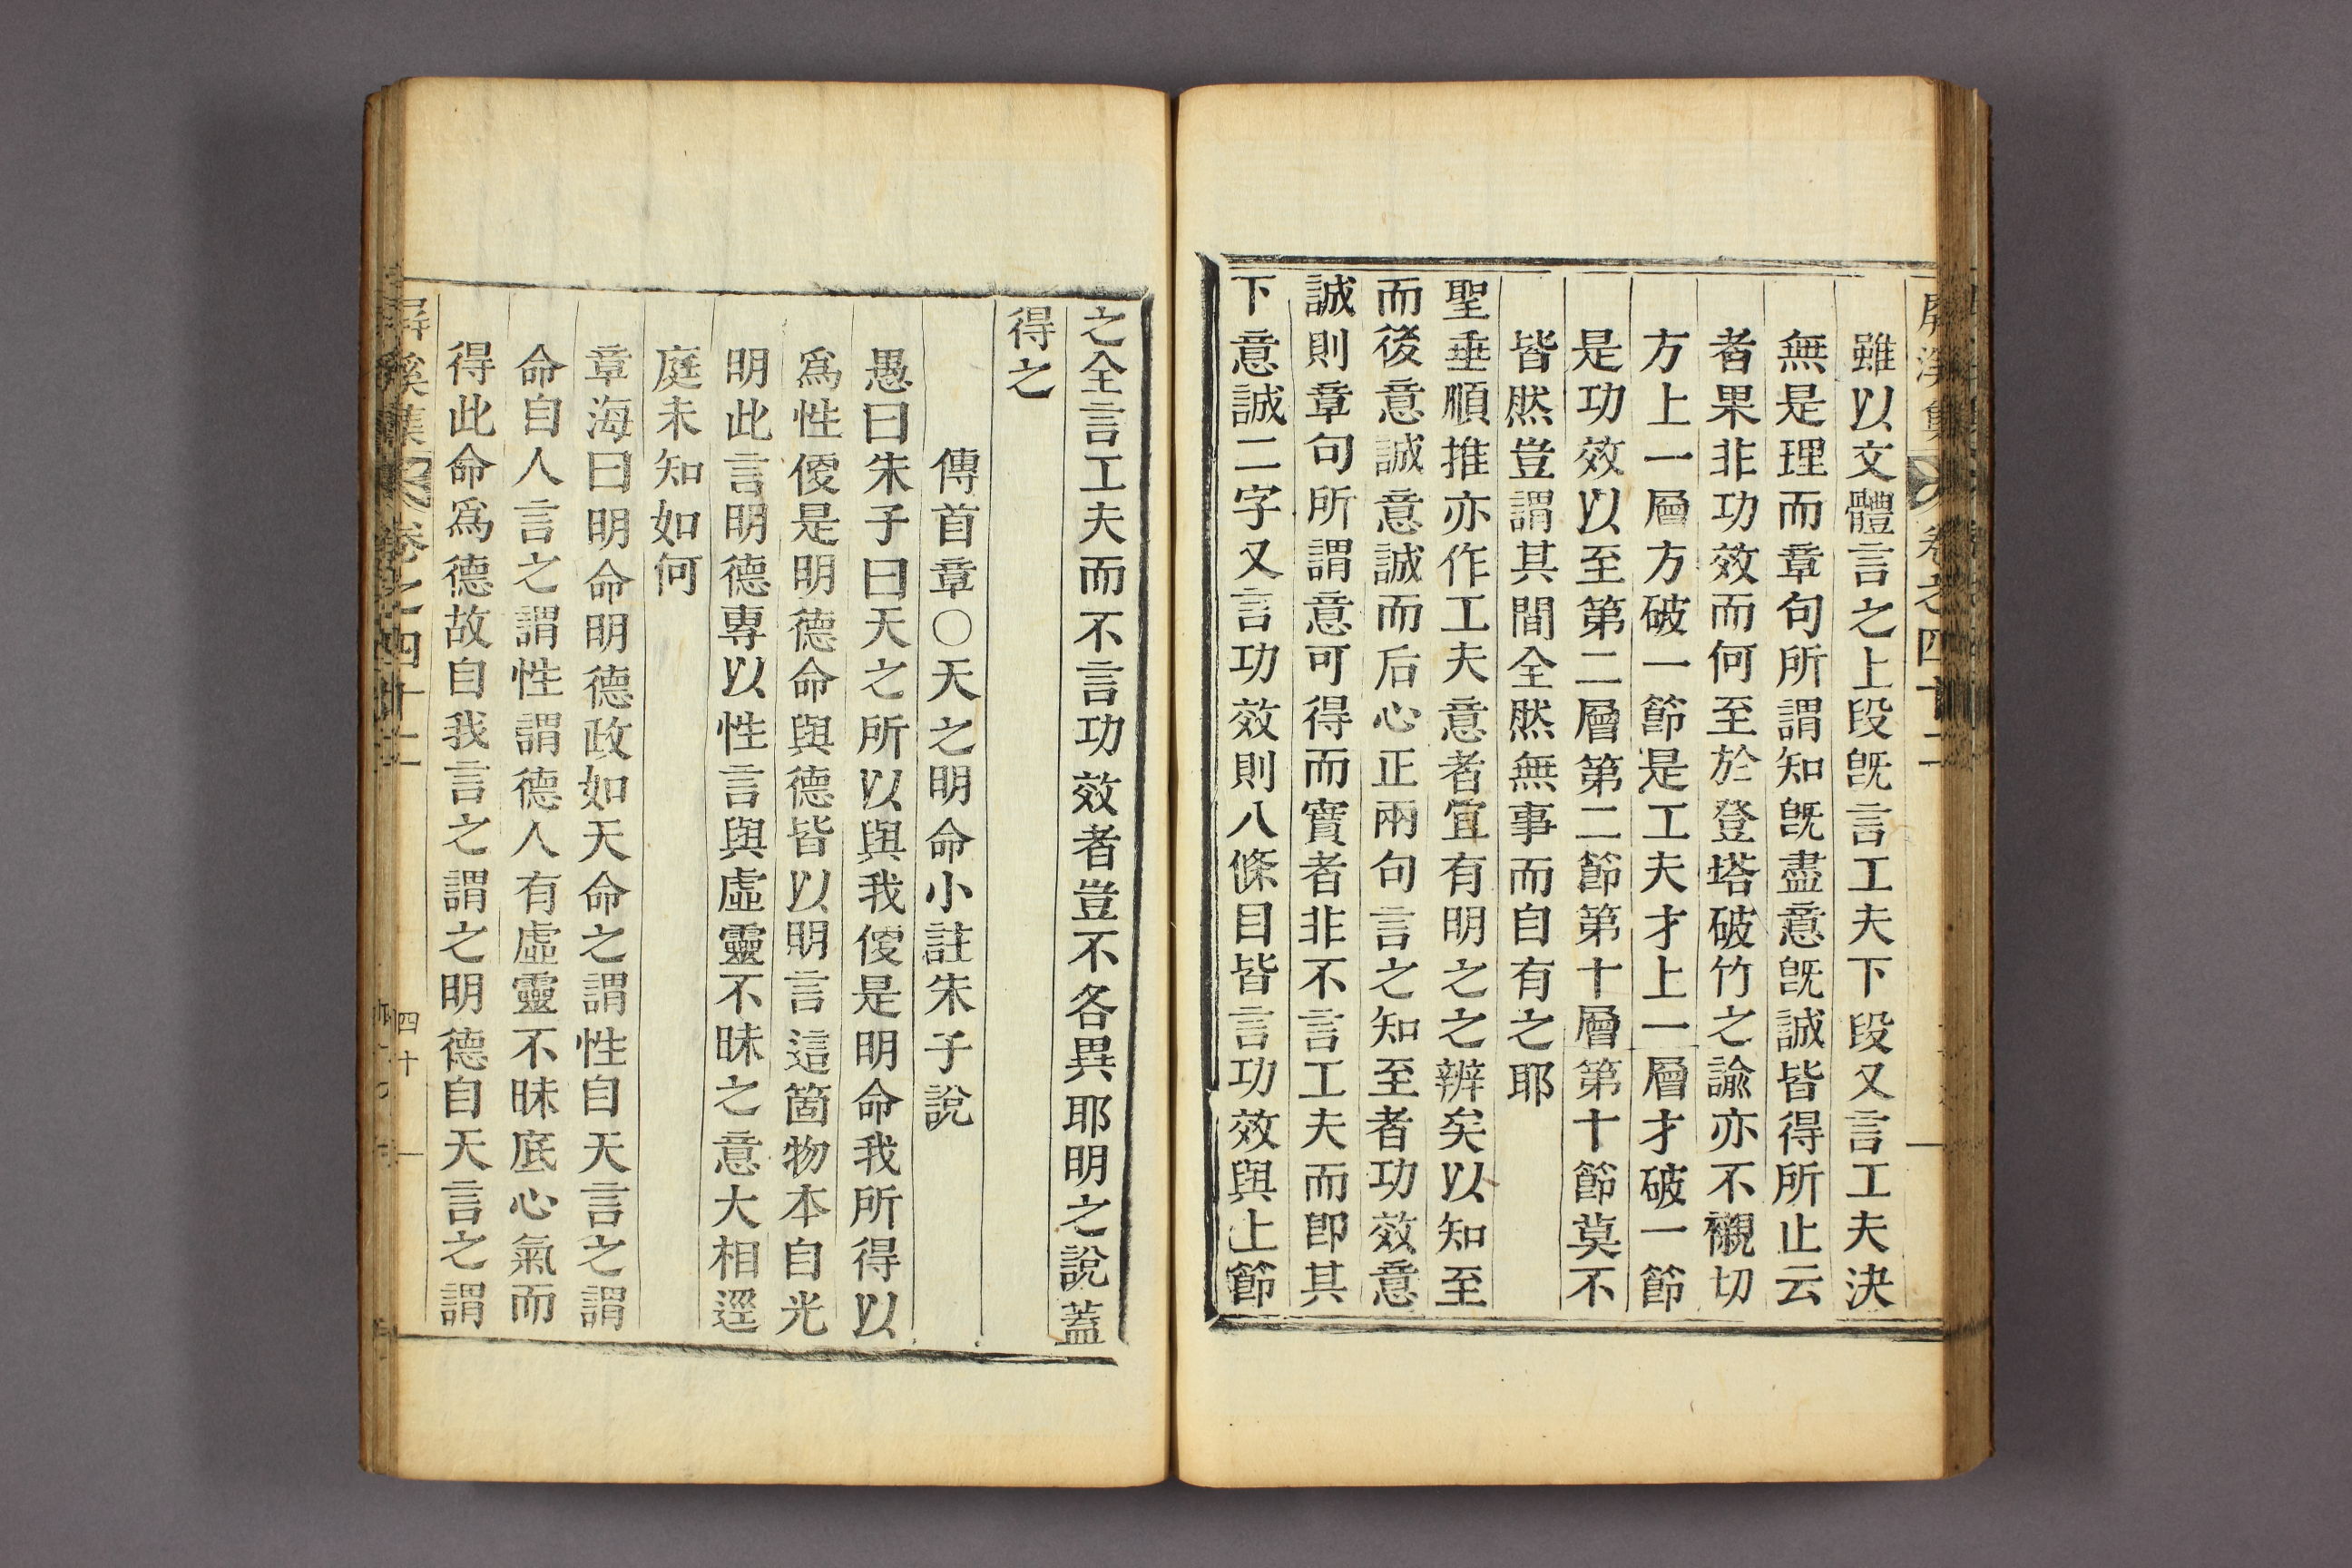 屏溪集 卷之四十二
雖以文體言之上段旣言工夫下段又言工夫決
無是理而章句所謂知旣盡意旣誠皆得所止云
者果非功效而何至於登塔破竹之諭亦不襯切
方上一層方破一節是工夫才上一層才破一節
是功效以至第二層第二節第十層第十節莫不
皆然豈謂其間全然無事而自有之耶
聖垂順推亦作工夫意者宜有明之之辨矣以知至
而後意誠意誠而后心正兩句言之知至者功效意
誠則章句所謂意可得而實者非不言工夫而卽其
下意誠二字又言功效則八條目皆言功效與上節
之全言工夫而不言功效者豈不各異耶明之說蓋
得之
傳首章○天之明命小註朱子說
愚曰朱子曰天之所以與我便是明命我所得以
爲性便是明德命與德皆以明言這箇物本自光
明此言明德專以性言與虛靈不昧之意大相逕
庭未知如何
章海曰明命明德政如天命之謂性自天言之謂
命自人言之謂性謂德人有虛靈不昧底心氣而
得此命爲德故自我言之謂之明德自天言之謂
屏溪集 卷之四十二 四十一